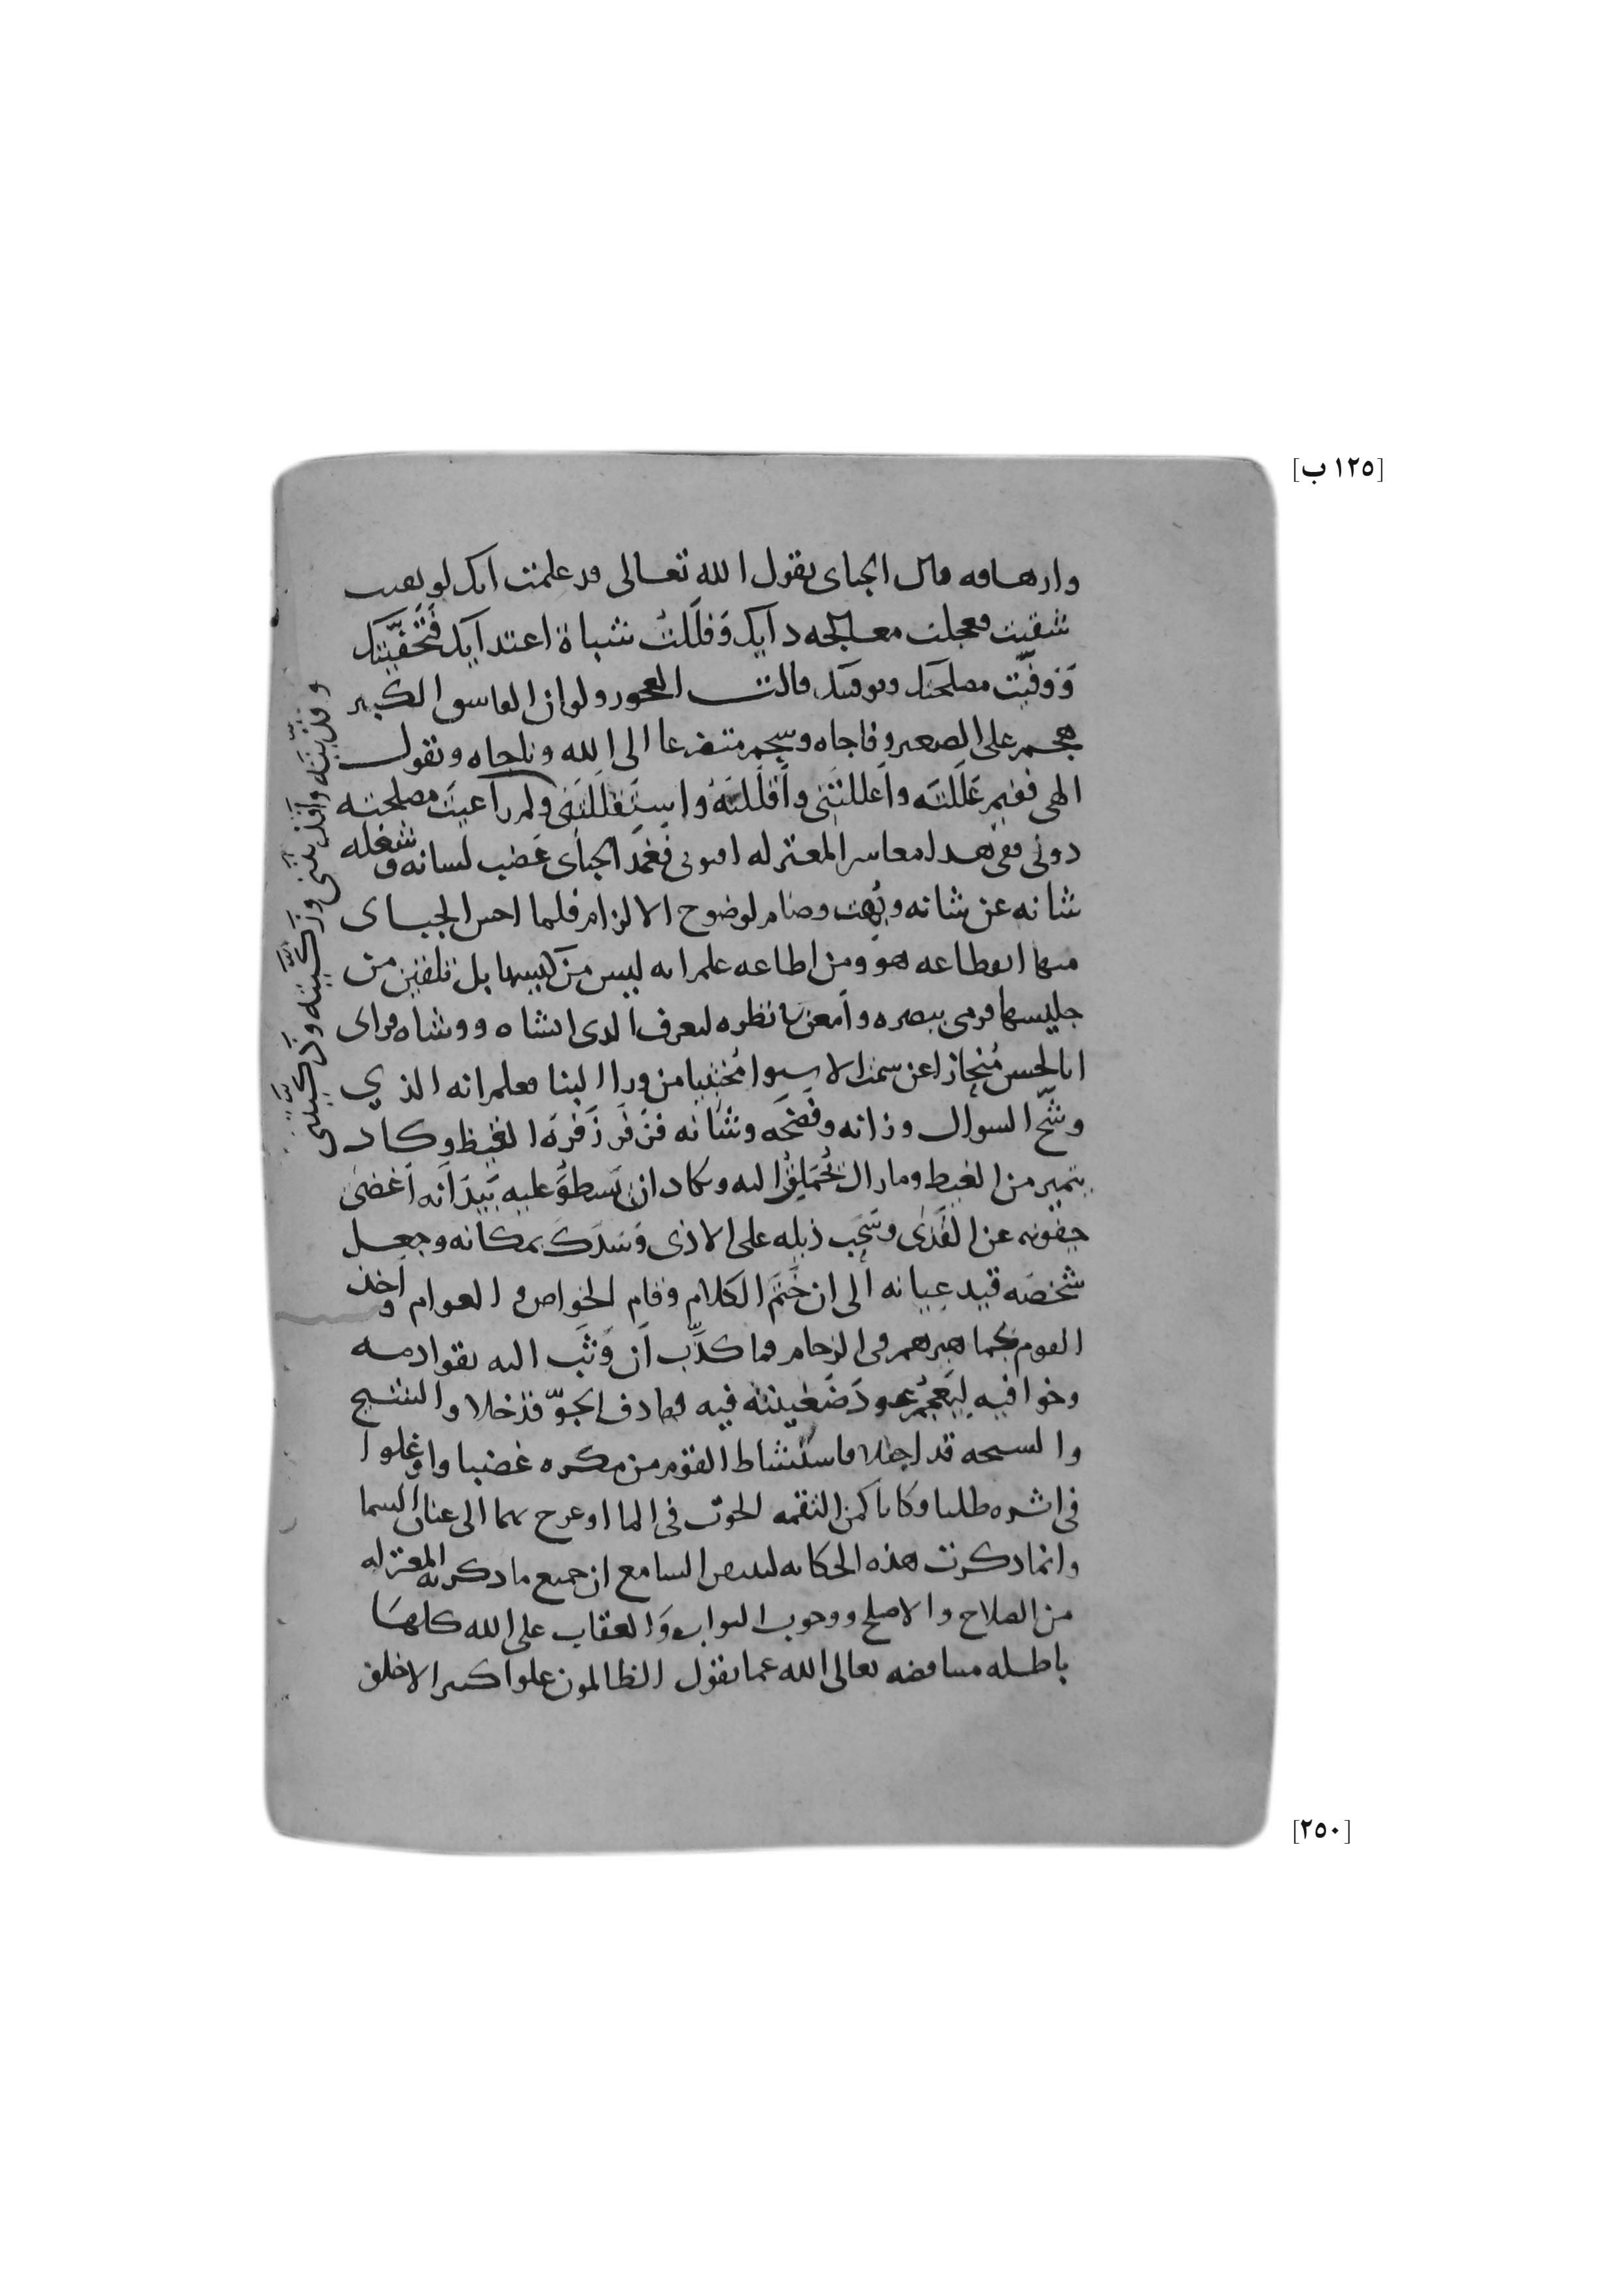 [١٢٥ ب]
وارهاقه قال الجباى يقول الله تعالى قد علمت انك لو بقيت
شقيت فعجلت معالجه دايك وَفَلَلتُ شباة اعتدايك
وَوَفَّيت مصلحتك قالت العجوز ولو ان الفاسق الكبير
هجم على الصغير وفاجاه وسجم متضرعا الى الله وناجاه ويقول
الهى ففيم عَلَّلتَه وأعللتَنى وأقلَلتَهُ ولم راعيتَ مصلحته
دونى ففى هذا معاشر المعتزله افتونى فغمد الجباى عَضب لسانه وشغله
شانه عن شانه وبُهت وضام لوضوح الالزام فلما احس الجباى
منها انقطاعه هو ومن اطاعه علم انه ليس من كيسها بل تلقين من
جليسها فرمى ببصره وأمعن نظره ليعرف الذى انشاه ووشاه فراى
ابا الحسن مُنحازا عن سمت الاستوا مُختبيا من ورا البنا فعلم انه الذي
وشّح السوال وزانه وفَضَحَه وشانه فزفر زَفرَة الغيظ وكاد
يتميز من الغيظ وما زال يُحَملِقُ اليه وكاد ان يَسطوَ عليه بَيدَ انه أغضى
جفونه عن القَذَى وسَحَب ذيله على الاذى وَسَدَكَ بمكانه وجعل
شخصَه قيد عيانه الى ان خَتَمَ الكلام وقام الخواص و العوام وأخذ
القوم بجماهيرهم فى الزحام فما كذَّب أن وَثَبَ اليه بقوادمه
وخوافيه ليَعجُم عود ضَغينته فيه فصادف الجوّ قد خلا والشيخ
والشيخه قد اجفلا فاستشاط القوم من مكره غضبا واوغلوا
فى اثره طلبا وكانا كمن التقمه الحوت فى الما او عرج بهما الى عنان السما
وانما ذكرت هذه الحكايه السامع ان جميع ما ذكرته المعتزله
من الصلاح والاصلح ووجوب الثواب وَالعقاب على الله كلها
باطله متناقضه تعالى الله عما يقول الظالمون علوا كبيرا لا خلق
[٢٥٠]